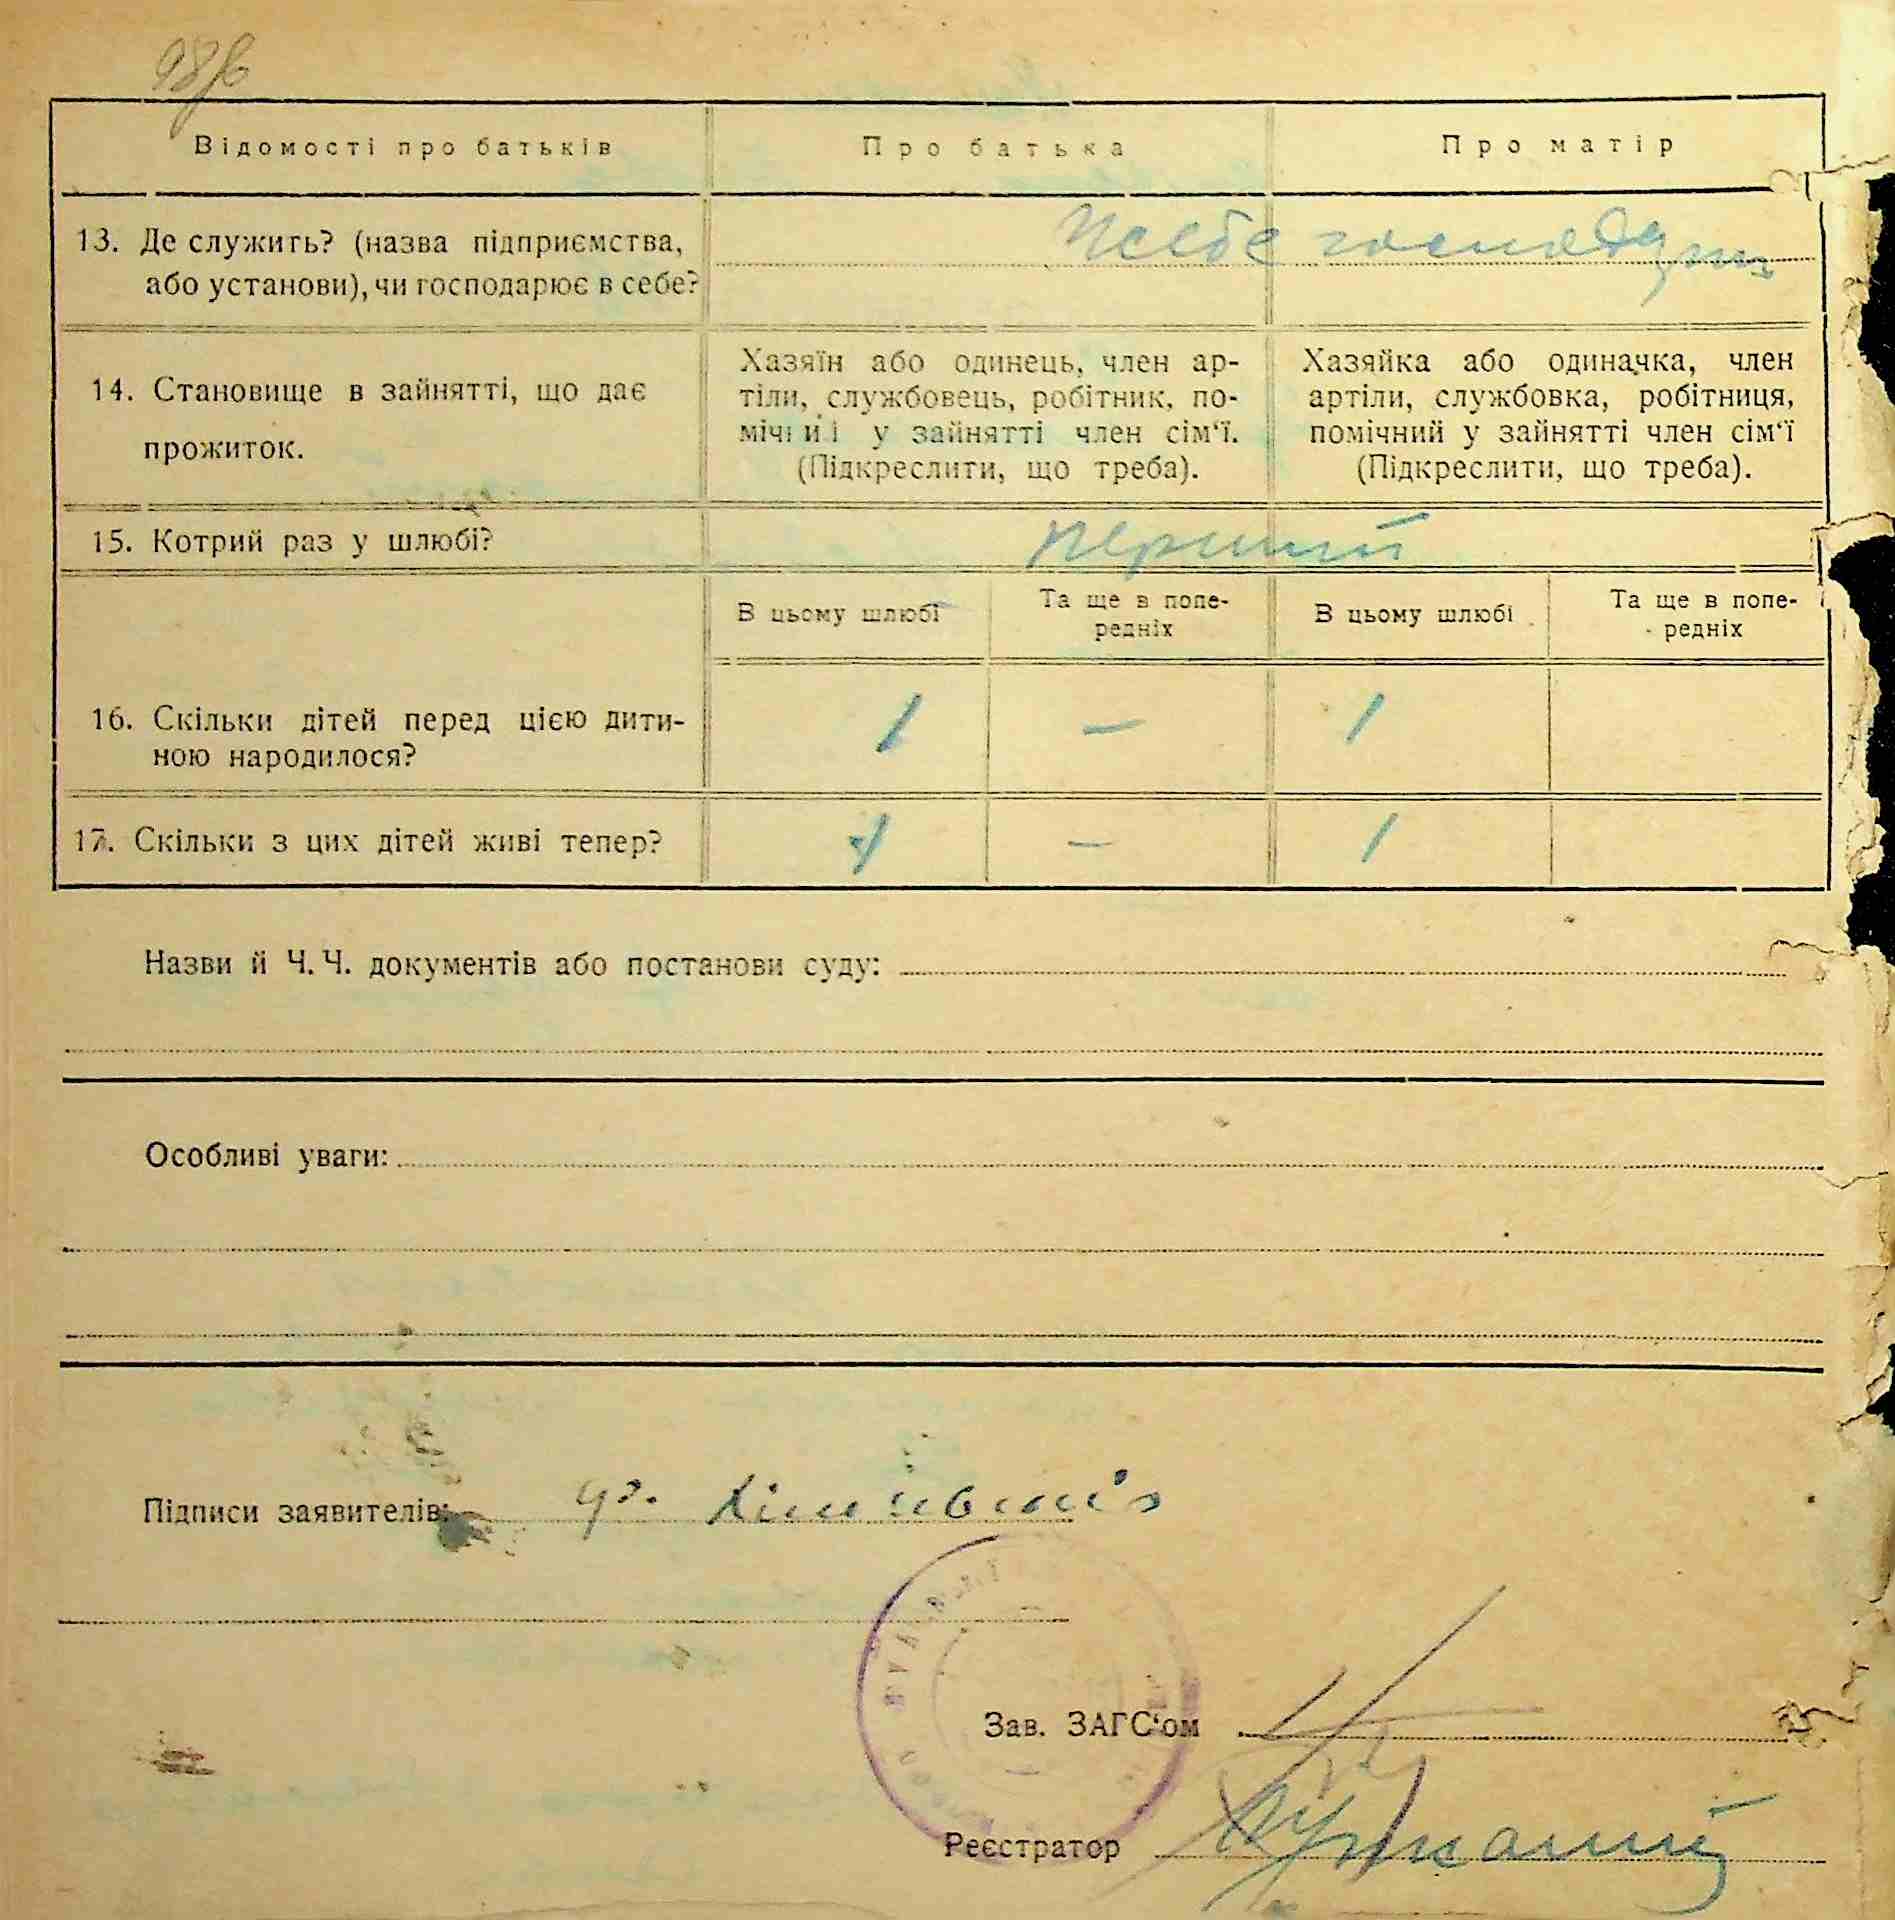 98
Відомості про батьків
Про батька
Про матір
13. Де служить? (назва підприємства,
або установи), чи господарює в себе?
14. Становище в зайнятті, що дає
прожиток.
Хазяїн або одинець, член ар-
тіли, службовець, робітник, по-
мічний у зайнятті член сім‘ї.
(Підкреслити, що треба).
Хазяйка або одиначка, член
артіли, службовка, робітниця,
помічний у зайнятті член сім‘ї
(Підкреслити, що треба).
15. Котрий раз у шлюбі?
перший
В цьому шлюбі
Та ще в попе-
редніх
В цьому шлюбі
Та ще в попе-
редніх
16. Скільки дітей перед цією дити-
ною народилося?
1 – 1
17. Скільки з цих дітей живі тепер?
1 – 1
Назви й Ч. Ч. документів або постанови суду:
Особливі уваги:
Підписи заявителів:
Зав. ЗАГС‘ом
Реєстратор